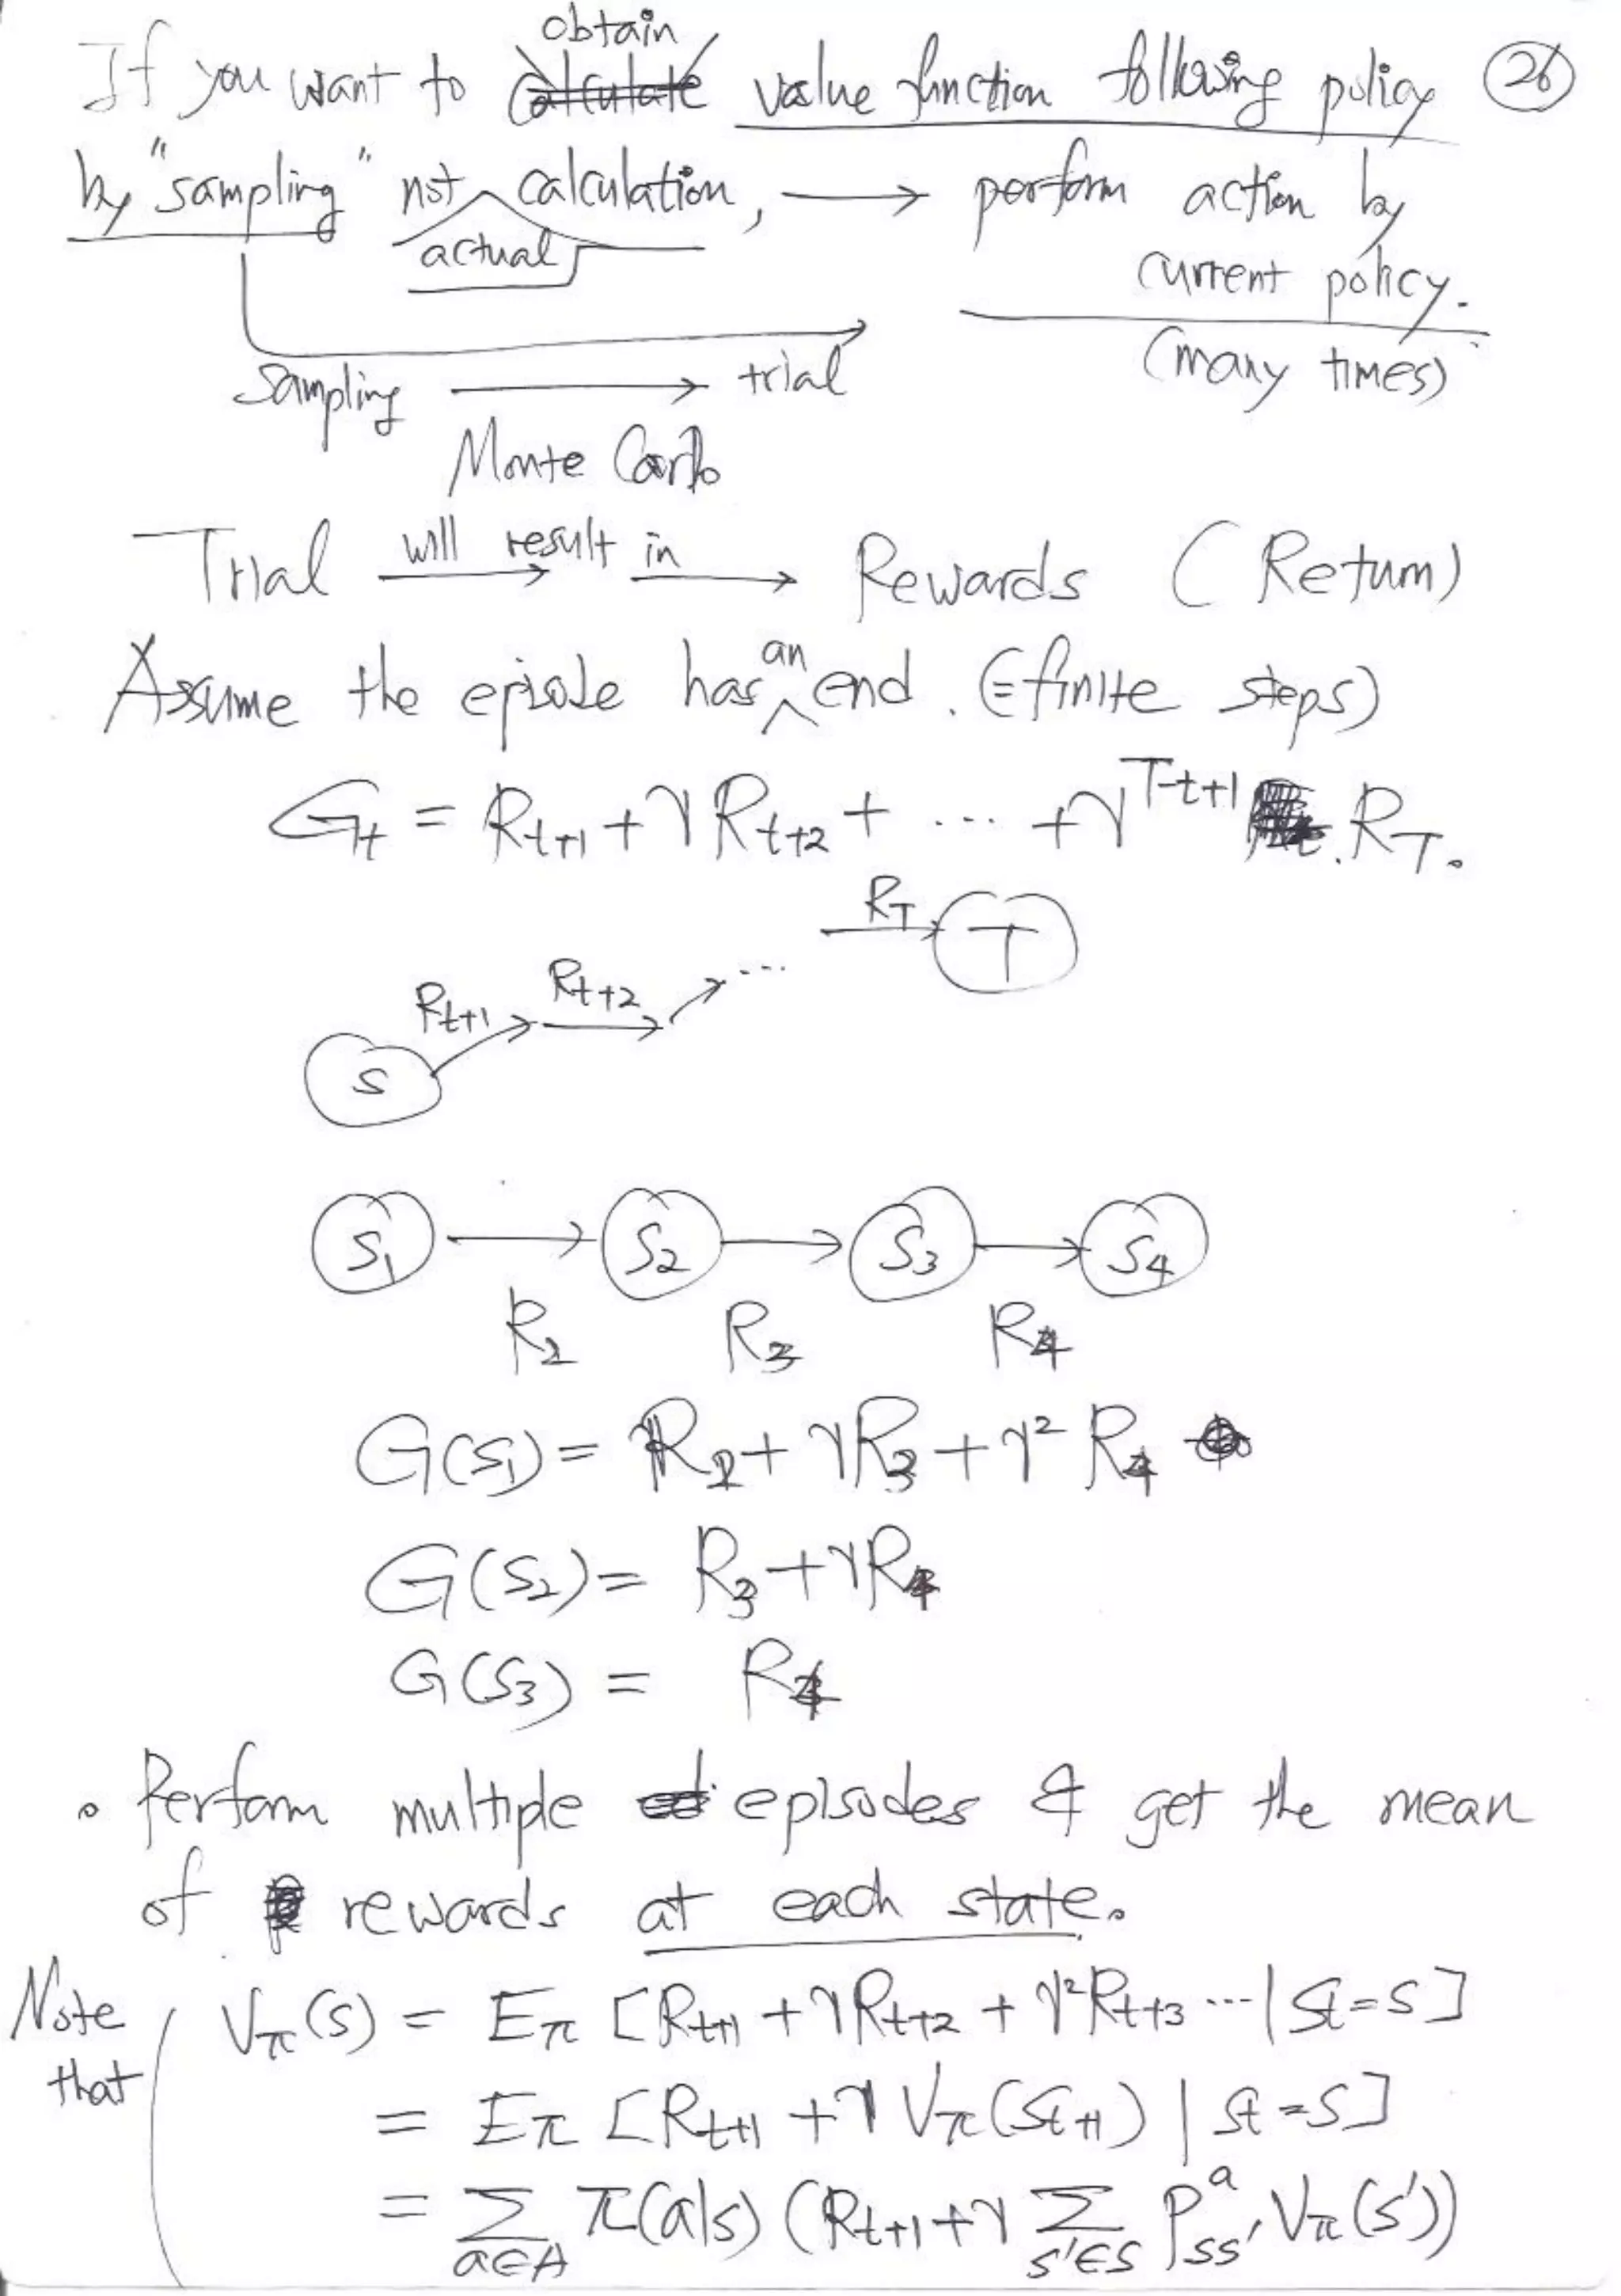 If you want to obtain value function following policy 26
by "sampling" not actual calculation, → perform action by
current policy.
(many times)
Sampling → trial
Monte Carlo
Trial will result in → Rewards (Return)
Assume the episode has an end. (=finite steps)
G_t = R_{t+1} + γR_{t+2} + ... + γ^{T-t+1} . R_T.
R_T T
R_{t+1} R_{t+2} ...
S
S_1 → S_2 → S_3 → S_4
R_2 R_3 R_4
G(S_1) = R_2 + γR_3 + γ² R_4
G(S_2) = R_3 + γR_4
G(S_3) = R_4
• Perform multiple episodes & get the mean
of rewards at each state.
Note that V_π(s) = E_π [R_{t+1} + γR_{t+2} + γ²R_{t+3} ... | S_t = s]
= E_π [R_{t+1} + γ V_π(S_{t+1}) | S_t = s]
= Σ_{a∈A} π(a|s) (R_{t+1} + γ Σ_{s'∈S} P^a_{ss'} V_π(s'))